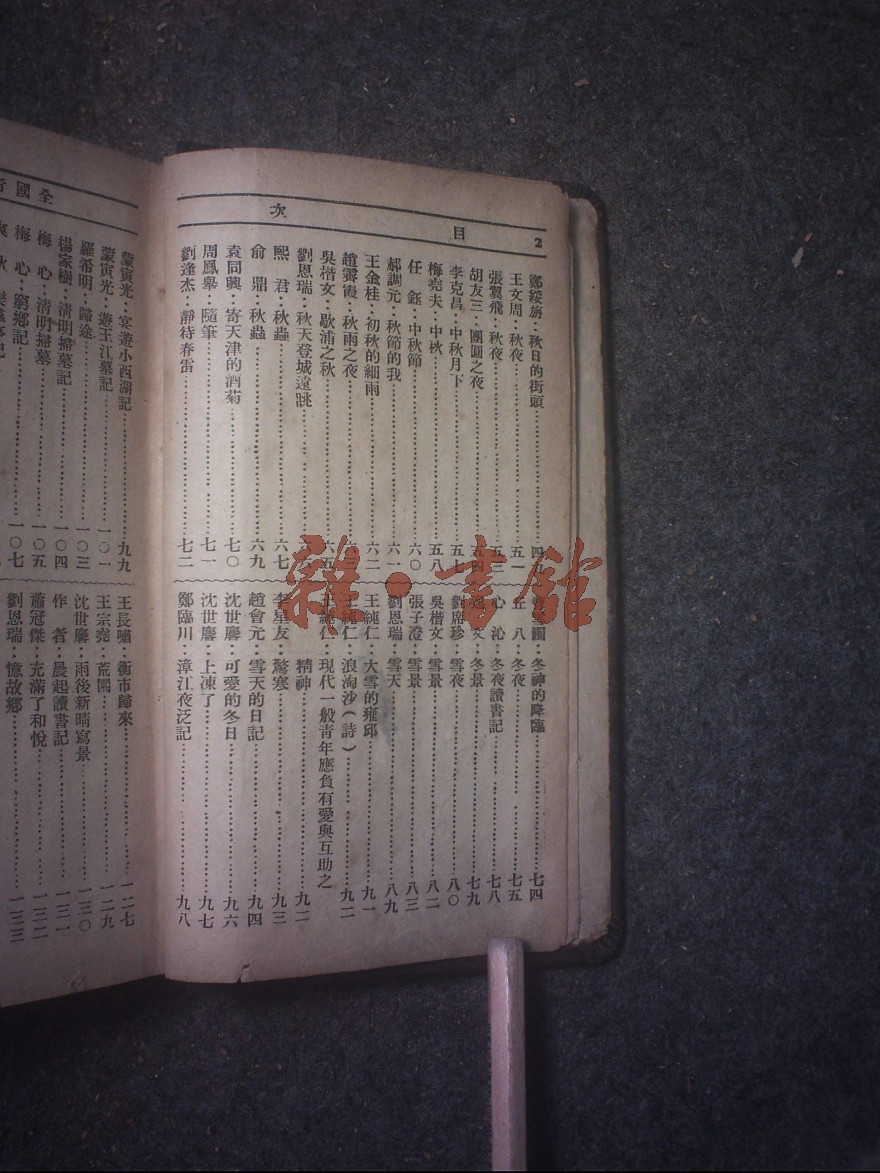 2 目次
鄭綏旃：秋日的街頭
王文周：秋夜 五一
張翼飛：秋夜 五三
胡友三：團圓之夜 五四
李克昌：中秋月下 五七
梅堯夫：中秋 五八
任　鈺：中秋節 六〇
郝調元：秋節的我 六一
王金桂：初秋的細雨 六二
趙霽霞：秋雨之夜
吳楷文：歇浦之秋 六五
劉恩瑞：秋天登城遠眺
熙　君：秋蟲 六七
俞　鼎：秋蟲 六九
袁同興：寄天津的酒菊 七〇
周鳳舉：隨筆 七一
劉逢杰：靜待春雷 七二
冬神的降臨 七四
丘　八：冬夜 七五
心　沁：冬夜讀書記 七八
文：冬景 七九
劉席珍：雪夜 八〇
吳楷文：雪景 八二
張子澄：雪景 八三
劉恩瑞：雪天 八九
王純仁：大雪的雍邱 九一
王純仁：浪淘沙（詩） 九二
王純仁：現代一般青年應負有愛與互助之
精神 九二
李星友：驚寒 九三
趙會元：雪天的日記 九四
沈世䴡：可愛的冬日 九六
沈世䴡：上凍了 九七
鄭臨川：漳江夜泛記 九八
全國
蒙寅光：宴遊小西湖記 九九
蒙寅光：遊王江墓記 一〇一
羅希明：歸途 一〇三
楊家樹：清明掃墓記 一〇四
梅　心：清明掃墓 一〇五
梅　心：窮鄉記 一〇七
王長嘯：衝市歸來 一二七
王宗堯：荒園 一二九
沈世䴡：雨後新晴寫景 一三〇
作　者：晨起讀書記 一三一
蕭冠傑：充滿了和悅 一三二
劉恩瑞：憶故鄉 一三三
雜·書館